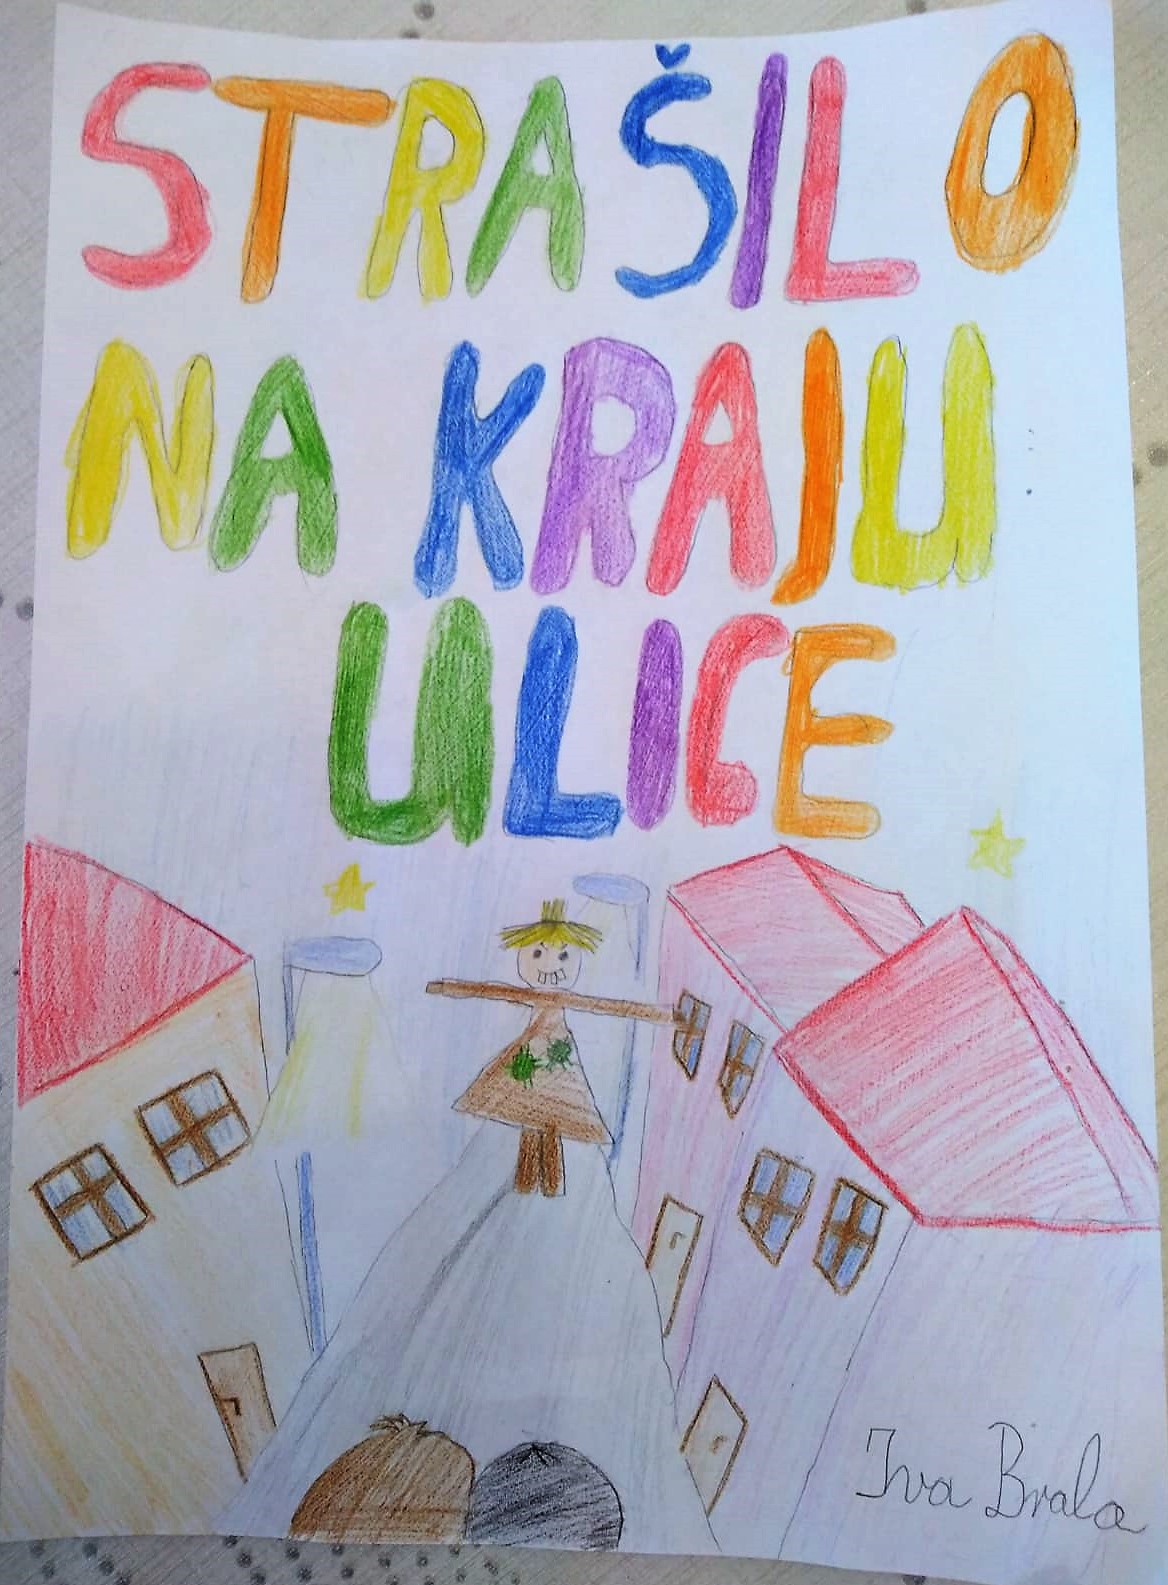 STRAŠILO
NA KRAJU
ULICE
Iva Brala